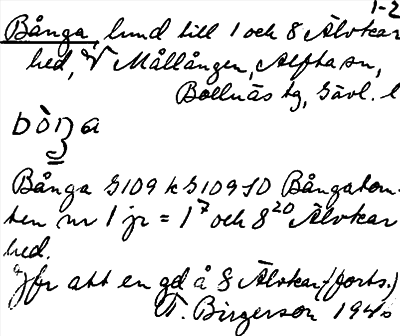 1-2
Bånga, lund till 1 och 8 Älvkar
hed, V Mållången, Alfta sn,
Bollnäs tg, Gävl. l
Bånga G109 k G109 SO Bångatom-
ten nr 1 jr = 1⁷ och 8²⁰ Älvkar
hed.
Jfr att en gd å 8 Älvkar (forts.)
T. Birgerson 1940